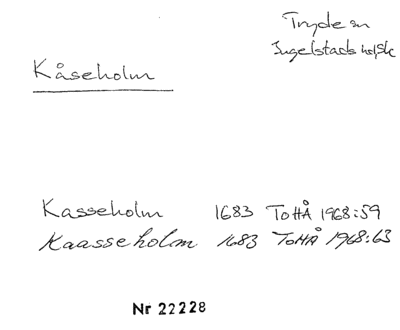 Tryde sn
Ingelstads hd, Sk
Kåseholm
Kasseholm 1683 ToHÅ 1968:59
Kaasseholm 1683 ToHÅ 1968:63
Nr 22228